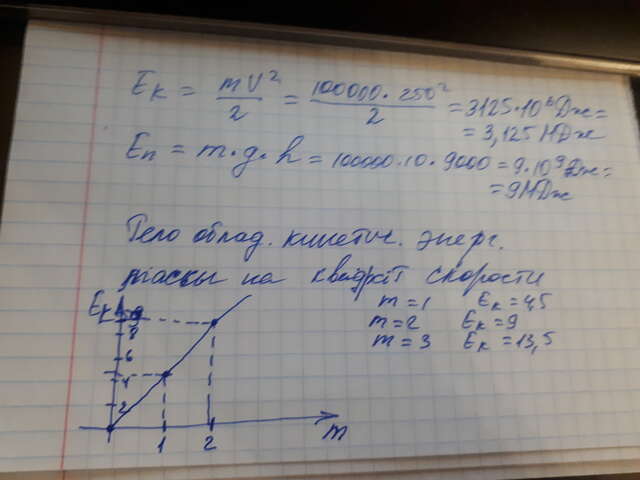 Eк = mV²/2 = 100000·250²/2 = 3125·10⁶Дж =
= 3,125 МДж
Eп = m·g·h = 100000·10·9000 = 9·10⁹Дж =
= 9МДж
Тело облад. кинетич. энерг.
массы на квадрат скорости
m=1 Eк=4,5
m=2 Eк=9
m=3 Eк=13,5
Eк
9
8
6
4
2
1 2 m